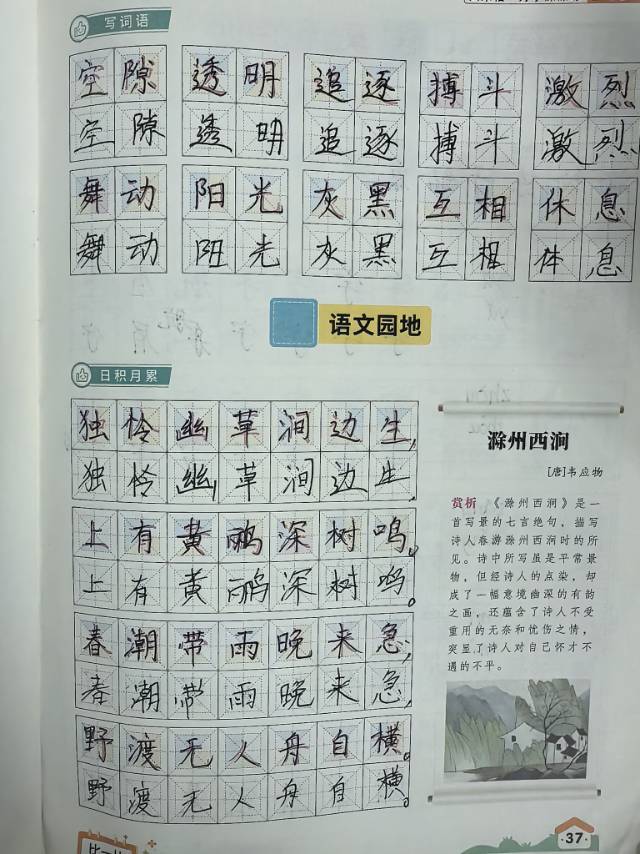 写词语
空隙 透明 追逐 搏斗 激烈
空隙 透明 追逐 搏斗 激烈
舞动 阳光 灰黑 互相 休息
舞动 阳光 灰黑 互相 体息
语文园地
日积月累
独怜幽草涧边生,
独怜幽草涧边生
上有黄鹂深树鸣。
上有黄鹂深树鸣。
春潮带雨晚来急,
春潮带雨晚来急,
野渡无人舟自横。
野渡无人舟自横。
滁州西涧
[唐]韦应物
赏析 《滁州西涧》是一
首写景的七言绝句,描写
诗人春游滁州西涧时的所
见。诗中所写虽是平常景
物,但经诗人的点染,却
成了一幅意境幽深的有韵
之画,还蕴含了诗人不受
重用的无奈和忧伤之情,
突显了诗人对自己怀才不
遇的不平。
37